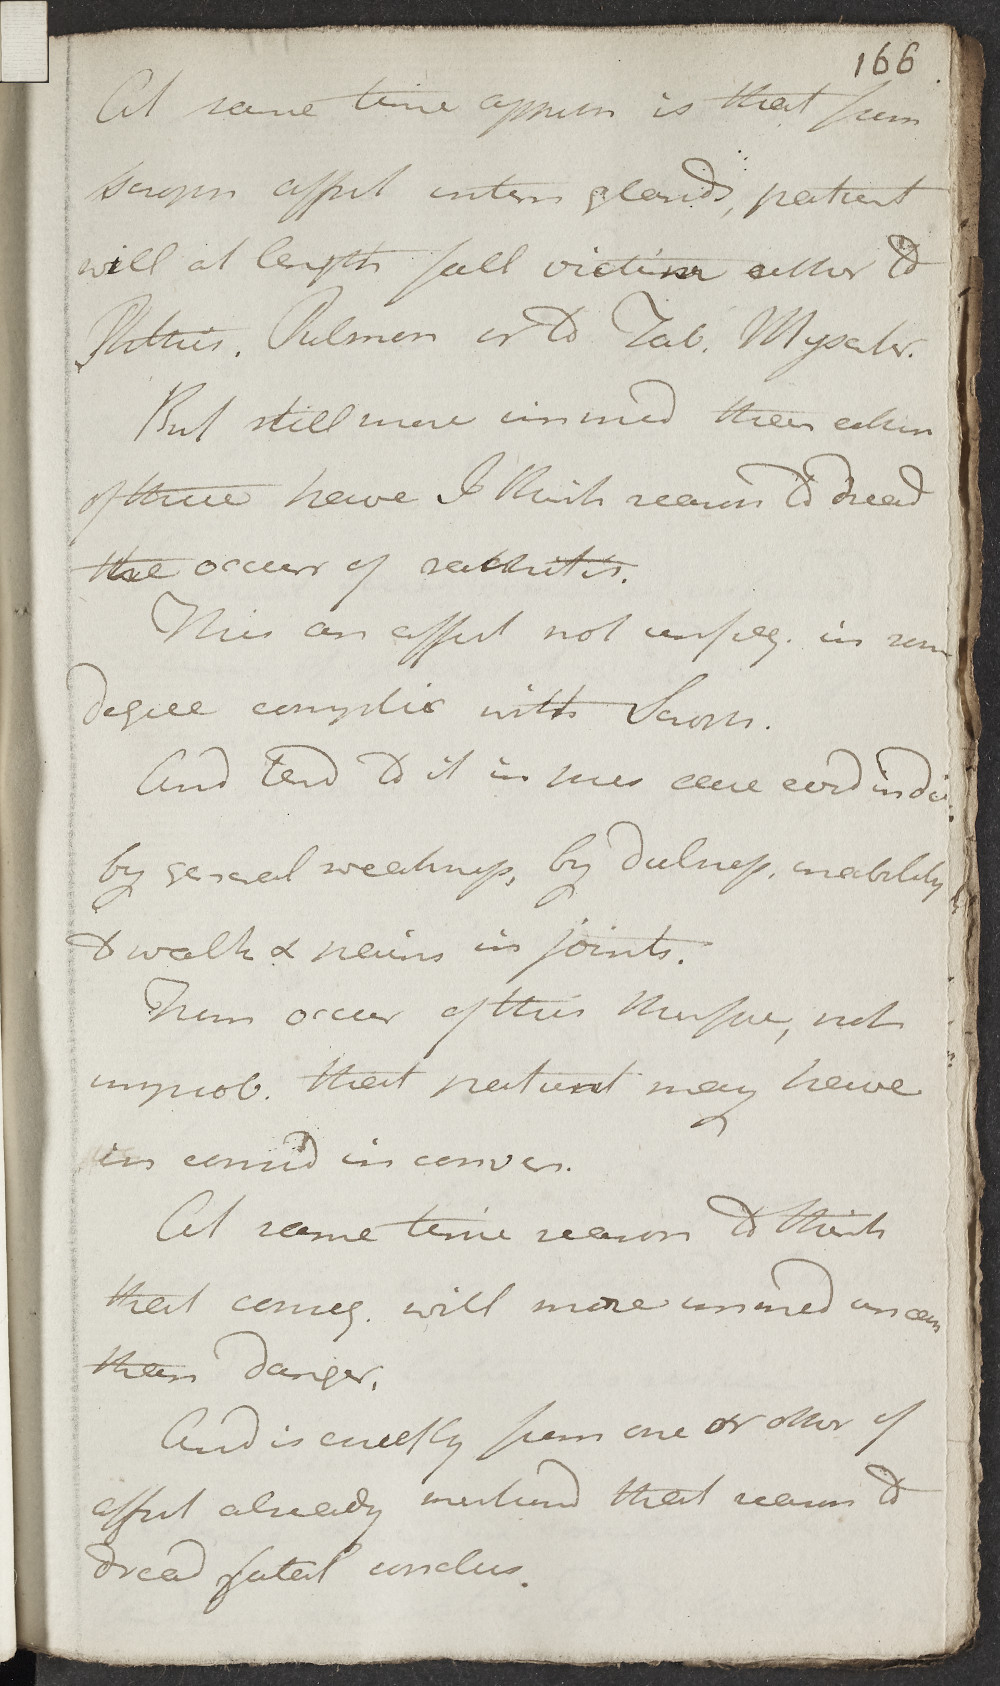 166
At same time appreh is that from
scroph affect intern glands, patient
will at length fall victim either to
Phthis. Pulmon or to Tab. Mysenter.
But still more immed than either
of these have I think reason to dread
the occurr of rachitis.
This an affect not unfreq. in som
degree complic with Scroph.
And tend to it in pres case evid indic
by general weakness, by dulness, inability
to walk & pains in joints.
From occur of this therfore, not
improb. that patient may have
in conver.
At same time reason to think
that conseq. will more immed
than danger.
And is chiefly from one or other of
affect already mentiond that reason to
dread fatal conclus.